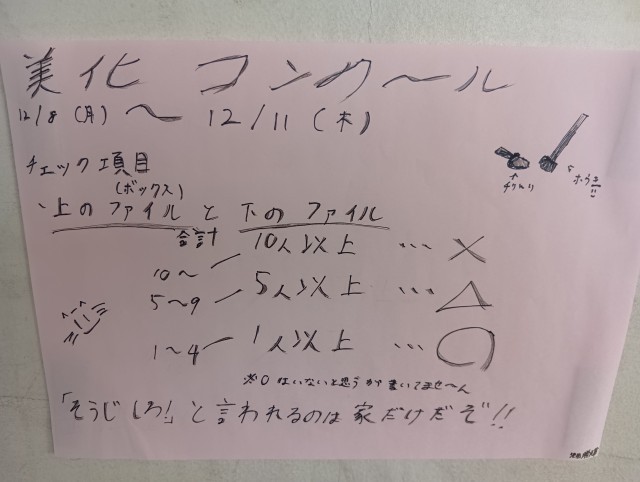 美化 コンクール
12/8 (月) ～ 12/11 (木)
チェック項目
(ボックス)
・上のファイル と 下の ファイル
合計
10～ 10人以上 … ×
5～9 5人以上 … △
1～4 1人以上 … ○
※0はいないと思うが書いてませ～ん
「そうじしろ!」と言われるのは家だけだぞ!!
↑
ちりとり
ほうき